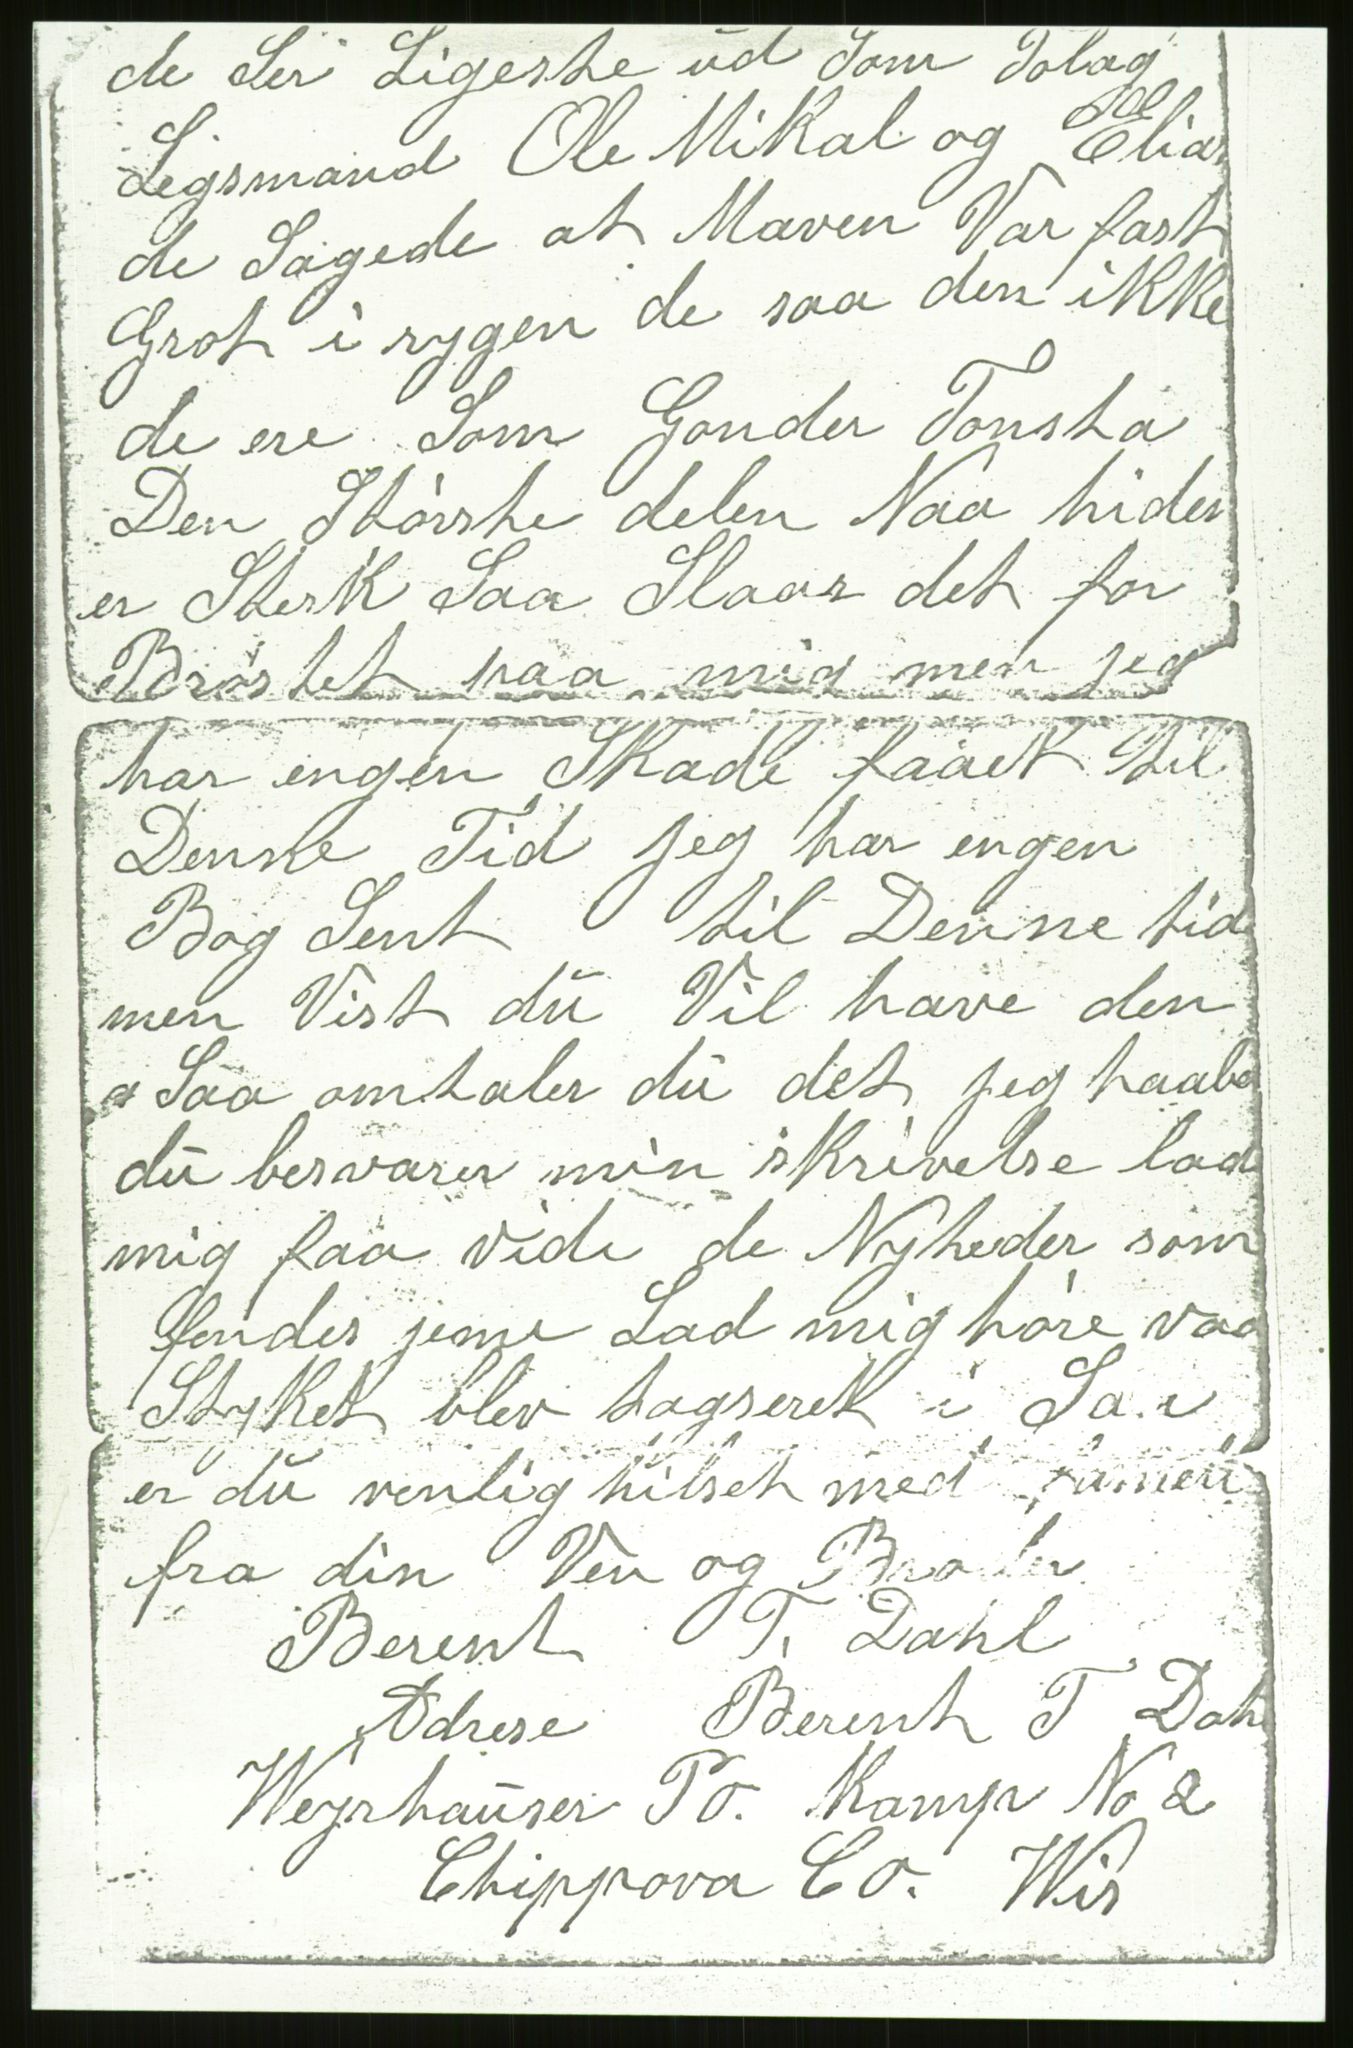 de Ser Ligeste ud Som Tolag
Legsmand Ole Mikal og Ole Elias
de Sagede at Maven Var fast
Grot i rygen de saa den ikke
de ere Som Gonder Tonsta
Den Største delen Naa hider
er Sterk Saa Slaar det for
Brøstet paa mig men jeg
har engen Skade faaet til
Denne Tid jeg har engen
Bog Sent til Denne tid
men Vist du Vil have den
Saa omtaler du det jeg haabe
du besvarer min skrivelse lad
mig faa vide de Nyheder som
fendes jeme Lad mig høre vaa
Styket blev tagseret i
er du venlig hilset med
fra din Ven og Broder
Berent T. Dahl
Adrese Berent T Dah
Weyrhauser Po. Kamp No 2
Chippova Co. Wis